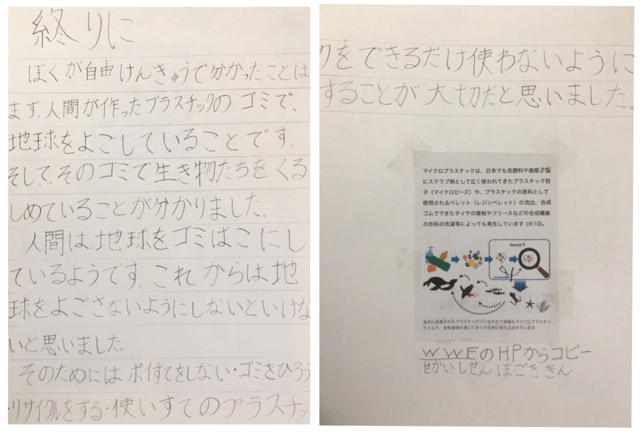 終りに
ぼくが自由けんきゅうで分かったことは
まず、人間が作ったプラスチックのゴミで、
地球をよごしていることです。
そして、そのゴミで生き物たちをくる
しめていることが分かりました。
人間は、地球をゴミばこにし
ているようです。これからは、地
球をよごさないようにしないといけな
いと思いました。
そのためにはポイすてをしない・ゴミをひろう
・リサイクルをする・使いすてのプラスチッ
クをできるだけ使わないように
することが大切だと思いました。
マイクロプラスチックは、日本でも洗顔料や歯磨き粉
にスクラブ剤として広く使われてきたプラスチック粒
子（マイクロビーズ）や、プラスチックの原料として
使用されるペレット（レジンペレット）の流出、合成
ゴムでできたタイヤの摩耗やフリースなどの合成繊維
の衣料の洗濯等によっても発生しています（※10）。
WWFのHPからコピー
せかいしぜんほごききん